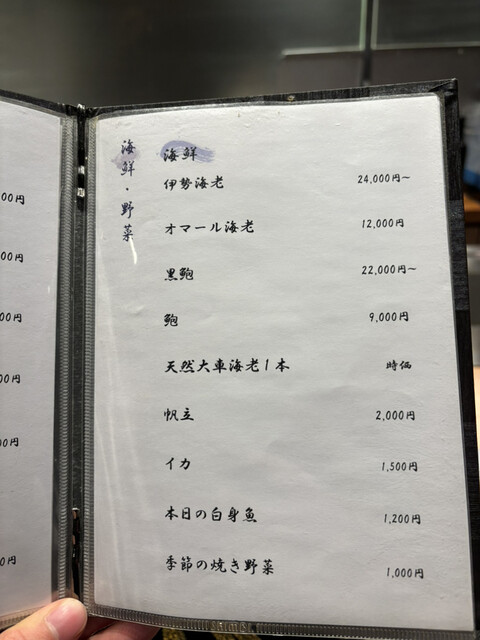 海鮮・野菜
海鮮
伊勢海老 24,000円~
オマール海老 12,000円
黒鮑 22,000円~
鮑 9,000円
天然大車海老1本 時価
帆立 2,000円
イカ 1,500円
本日の白身魚 1,200円
季節の焼き野菜 1,000円
00円
00円
00円
00円
0円
0円